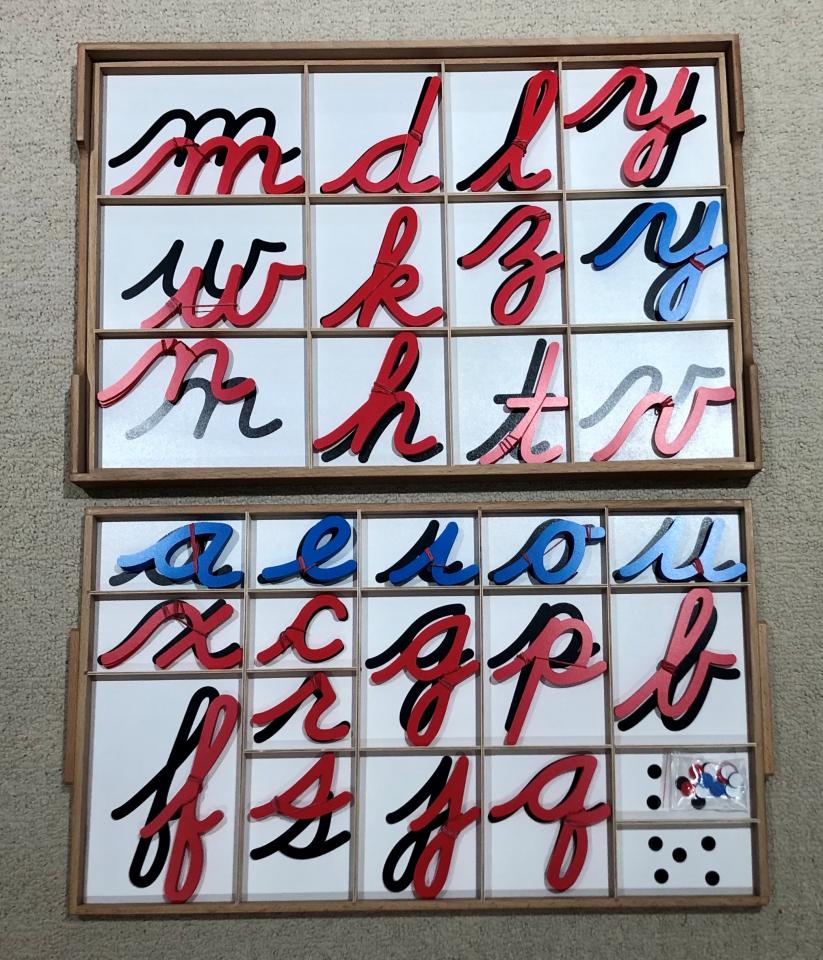 m d l y
w k z y
n h t v
a e i o u
x c g p b
f r
s j q